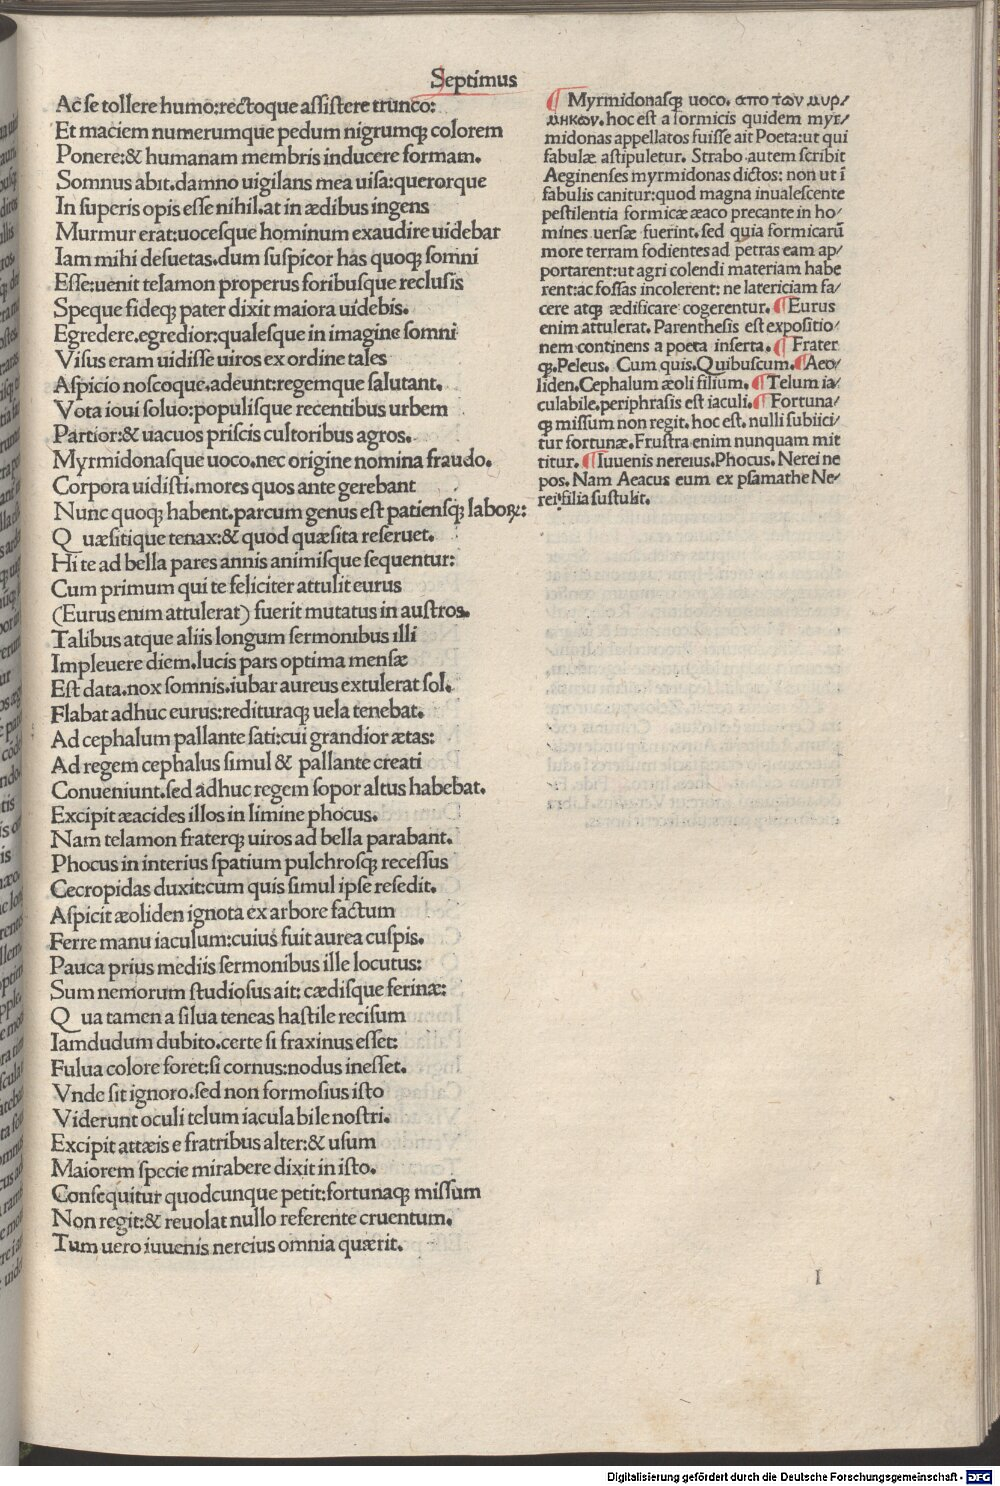 Septimus
Ac se tollere humo:rectoque assistere trunco:
Et maciem numerumque pedum nigrumq; colorem
Ponere:& humanam membris inducere formam.
Somnus abit.damno uigilans mea uisa:querorque
In superis opis esse nihil.at in ædibus ingens
Murmur erat:uocesque hominum exaudire uidebar
Iam mihi desuetas.dum suspicor has quoq; somni
Esse:uenit telamon properus foribusque reclusis
Speque fideq; pater dixit maiora uidebis.
Egredere.egredior:qualesque in imagine somni
Visus eram uidisse uiros ex ordine tales
Aspicio noscoque.adeunt:regemque salutant.
Vota ioui soluo:populisque recentibus urbem
Partior:& uacuos priscis cultoribus agros.
Myrmidonasque uoco.nec origine nomina fraudo.
Corpora uidisti.mores quos ante gerebant
Nunc quoq; habent.parcum genus est patiensq; laboꝝ:
Quæsitique tenax:& quod quæsita reseruet.
Hi te ad bella pares annis animisque sequentur:
Cum primum qui te feliciter attulit eurus
(Eurus enim attulerat) fuerit mutatus in austros.
Talibus atque aliis longum sermonibus illi
Impleuere diem.lucis pars optima mensæ
Est data.nox somnis.iubar aureus extulerat sol.
Flabat adhuc eurus:redituraq; uela tenebat.
Ad cephalum pallante sati:cui grandior ætas:
Ad regem cephalus simul & pallante creati
Conueniunt.sed adhuc regem sopor altus habebat.
Excipit æacides illos in limine phocus.
Nam telamon fraterq; uiros ad bella parabant.
Phocus in interius spatium pulchrosq; recessus
Cecropidas duxit:cum quis simul ipse resedit.
Aspicit æoliden ignota ex arbore factum
Ferre manu iaculum:cuius fuit aurea cuspis.
Pauca prius mediis sermonibus ille locutus:
Sum nemorum studiosus ait: cædisque ferinæ:
Qua tamen a silua teneas hastile recisum
Iamdudum dubito.certe si fraxinus esset:
Fulua colore foret:si cornus:nodus inesset.
Vnde sit ignoro.sed non formosius isto
Viderunt oculi telum iaculabile nostri.
Excipit attæis e fratribus alter:& usum
Maiorem specie mirabere dixit in isto.
Consequitur quodcunque petit:fortunaq; missum
Non regit:& reuolat nullo referente cruentum.
Tum uero iuuenis nereius omnia quærit.
¶ Myrmidonasq; uoco. απο των μυρ/
μηκων.hoc est a formicis quidem myr/
midonas appellatos fuisse ait Poeta:ut qui
fabulæ astipuletur. Strabo autem scribit
Aeginenses myrmidonas dictos: non ut ī
fabulis canitur:quod magna inualescente
pestilentia formicæ æaco precante in ho/
mines uersæ fuerint.sed quia formicarū
more terram fodientes ad petras eam ap/
portarent:ut agri colendi materiam habe
rent:ac fossas incolerent: ne latericiam fa/
cere atq; ædificare cogerentur. ¶Eurus
enim attulerat. Parenthesis est expositio/
nem continens a poeta inserta. ¶ Frater
q;.Peleus. Cum quis.Quibuscum.¶Aeo/
liden.Cephalum æoli filium.¶Telum ia/
culabile.periphrasis est iaculi.¶ Fortuna/
q; missum non regit.hoc est.nulli subiici/
tur fortunæ.Frustra enim nunquam mit
titur.¶Iuuenis nereius.Phocus.Nerei ne
pos. Nam Aeacus eum ex psamathe Ne/
rei filia sustulit.
I
Digitalisierung gefördert durch die Deutsche Forschungsgemeinschaft - DFG